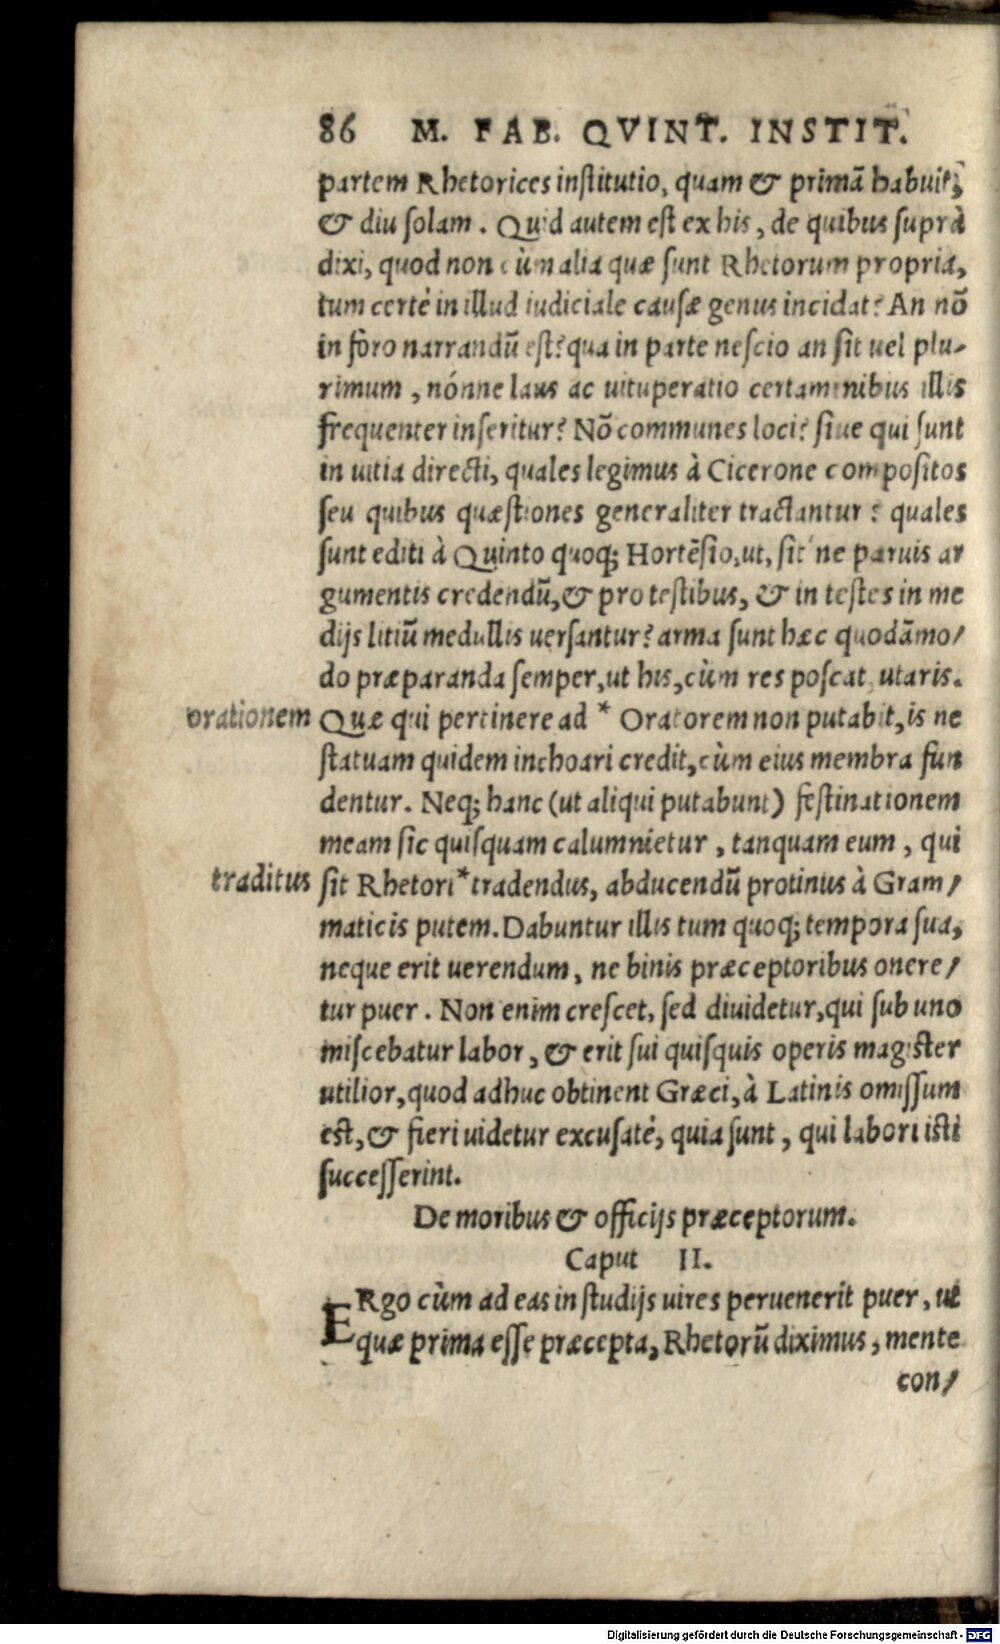 86 M. FAB. QVINT. INSTIT.
partem Rhetorices inſtitutio, quam & primã habuit,
& diu ſolam. Quid autem eſt ex his, de quibus ſuprà
dixi, quod non cùm alia quæ ſunt Rhetorum propria,
tum certè in illud iudiciale cauſæ genus incidat? An nõ
in foro narrandũ eſt? qua in parte neſcio an ſit uel plu-
rimum, nónne laus ac uituperatio certaminibus illis
frequenter inſeritur? Nõ communes loci? ſiue qui ſunt
in uitia directi, quales legimus à Cicerone compoſitos
ſeu quibus quæſtiones generaliter tractantur? quales
ſunt editi à Quinto quoq; Hortẽſio, ut, ſit ne paruis ar
gumentis credendũ, & pro teſtibus, & in teſtes in me
dijs litiũ medullis uerſantur? arma ſunt hæc quodãmo/
do præparanda ſemper, ut his, cùm res poſcat, utaris.
orationem Quæ qui pertinere ad * Oratorem non putabit, is ne
ſtatuam quidem inchoari credit, cùm eius membra fun
dentur. Neq; hanc (ut aliqui putabunt) feſtinationem
meam ſic quiſquam calumnietur, tanquam eum, qui
traditus ſit Rhetori * tradendus, abducendũ protinus à Gram/
maticis putem. Dabuntur illis tum quoq; tempora ſua,
neque erit uerendum, ne binis præceptoribus onere/
tur puer. Non enim creſcet, ſed diuidetur, qui ſub uno
miſcebatur labor, & erit ſui quiſquis operis magiſter
utilior, quod adhuc obtinent Græci, à Latinis omiſſum
eſt, & fieri uidetur excuſatè, quia ſunt, qui labori iſti
ſucceſſerint.
De moribus & officijs præceptorum.
Caput II.
ERgo cùm ad eas in ſtudijs uires peruenerit puer, ut
quæ prima eſſe præcepta, Rhetorũ diximus, mente
con/
Digitalisierung gefördert durch die Deutsche Forschungsgemeinschaft - DFG